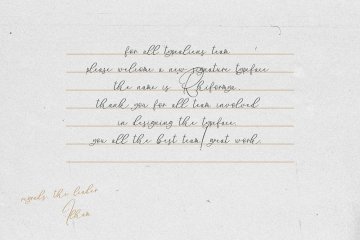 for all typealiens team
please welcome a new signature typeface
the name is Rhiforma.
thank you for all team involved
in designing the typeface.
you all the best team, great work.
regards, the leader
Ilham